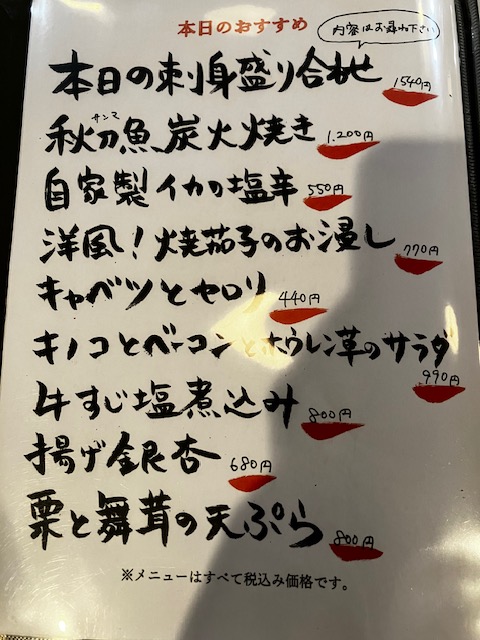 本日のおすすめ
内容はお尋ね下さい
本日の刺身盛り合わせ 1540円
サンマ
秋刀魚炭火焼き 1.200円
自家製イカの塩辛 550円
洋風!焼茄子のお浸し 770円
キャベツとセロリ 440円
キノコとベーコンとホウレン草のサラダ
990円
牛すじ塩煮込み 800円
揚げ銀杏 680円
栗と舞茸の天ぷら 800円
※メニューはすべて税込み価格です。